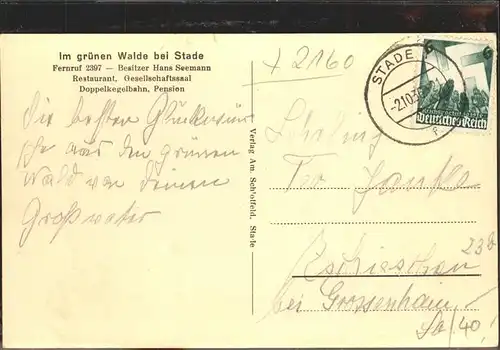 Im grünen Walde bei Stade
Fernruf 2397 — Besitzer Hans Seemann
Restaurant, Gesellschaftssaal
Doppelkegelbahn, Pension
Die besten Glückwün
sche aus dem grünen
Wald von deinem
Großvater
Verlag Am. Schlotfeld, Stade
+ 2160
STADE
Deutsches Reich
6
6
bei Grossenhain
Sa/40